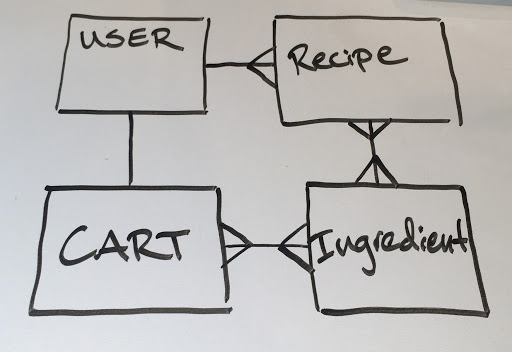 USER
Recipe
CART
Ingredient